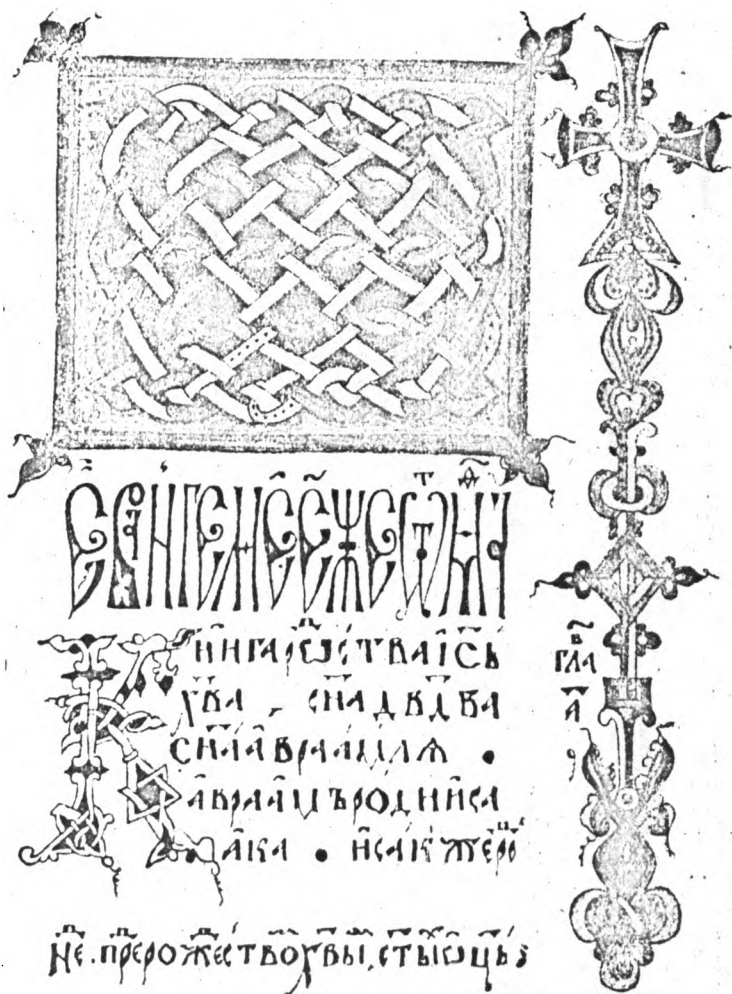 Е҃ВАНГЕЛИЕ Е҃ЖЕ Ѿ МАѲ
Книга рⷪ҇жства і҃съ
х҃ва , сн҃а дв҃два
сн҃а авраамлѧ •
авраамъ роди иса
ака • исак же рⷪ҇
гла в҃
а҃
не҃ . пре рожество х҃вы , ст҃ыⷯ ѡц҃ь